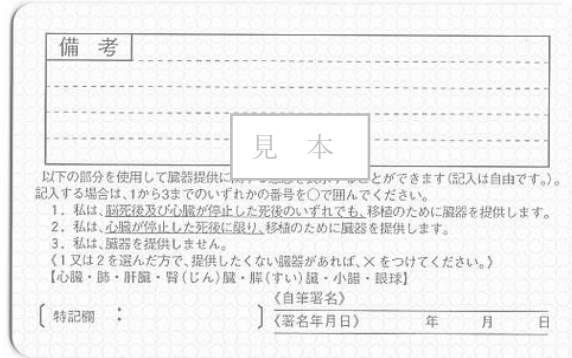 備考
見本
以下の部分を使用して臓器提供に関する意思を表示することができます(記入は自由です。)。
記入する場合は、1から3までのいずれかの番号を○で囲んでください。
1. 私は、脳死後及び心臓が停止した死後のいずれでも、移植のために臓器を提供します。
2. 私は、心臓が停止した死後に限り、移植のために臓器を提供します。
3. 私は、臓器を提供しません。
《1又は2を選んだ方で、提供したくない臓器があれば、×をつけてください。》
【心臓・肺・肝臓・腎(じん)臓・膵(すい)臓・小腸・眼球】
〔特記欄：　〕《自筆署名》
《署名年月日》　年　月　日